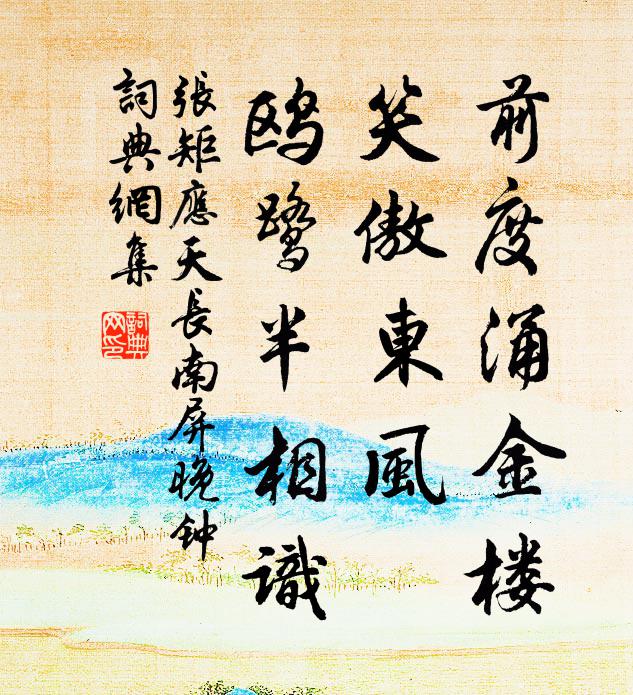 前度涌金楼
笑傲東風
鷗鷺半相識
張矩應天長南屏晚钟
詞典網集
詞典
网印